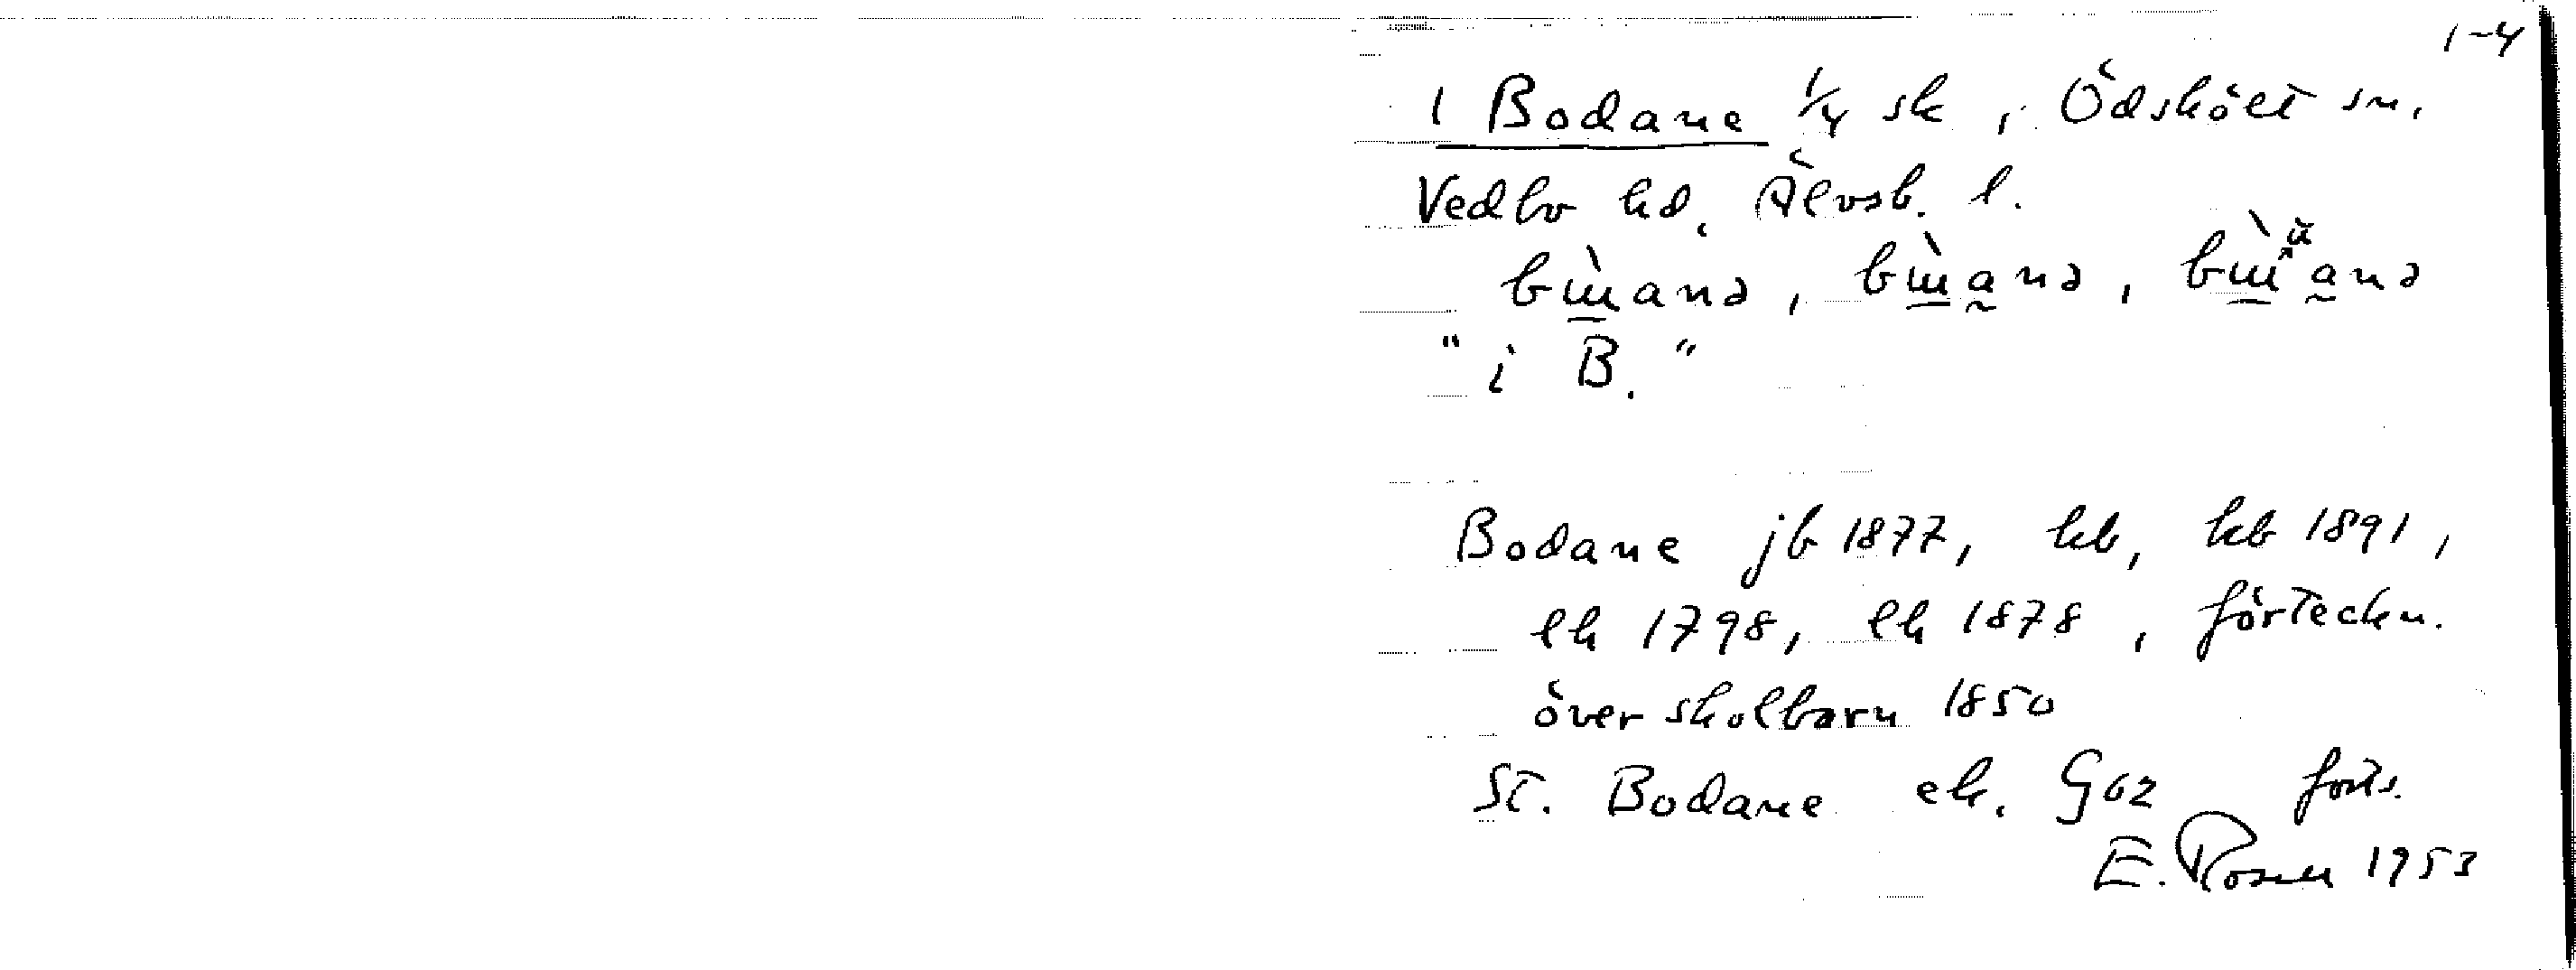 1-4
1 Bodane 1/4 sk, Ödskölt sn,
Vedbo hd, Älvsb. l.
"i B."
Bodane jb 1877, hb, kb 1891,
lh 1798, lh 1878, förteckn.
över skolbarn 1850
St. Bodane ek. G 62 forts.
E. Rosell 1953